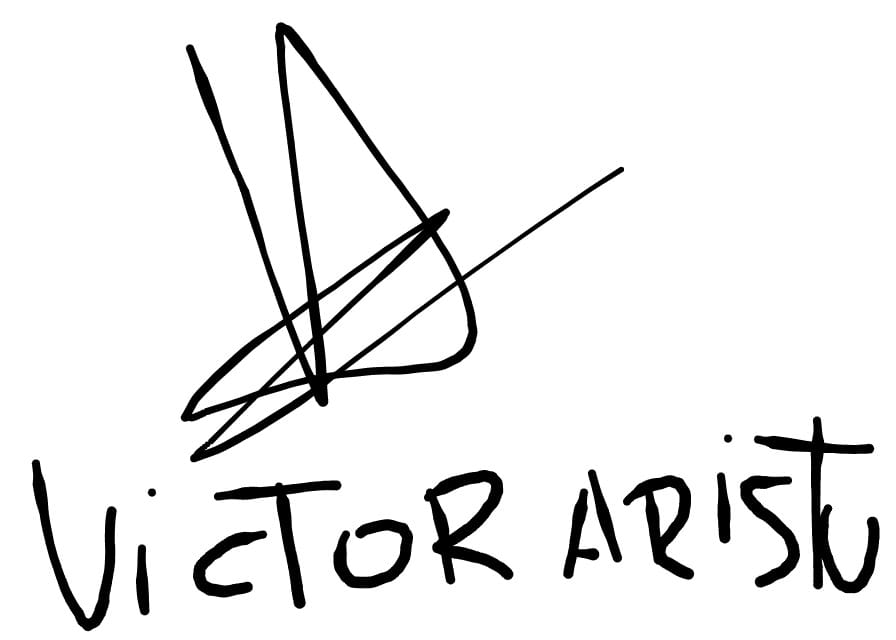 ViCTOR ARiSTU